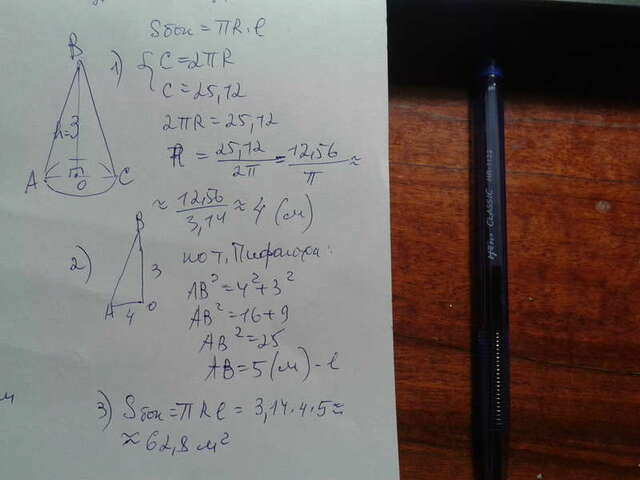 Sбок = πR·l
B
1) { C = 2πR
C = 25,12
h=3
2πR = 25,12
R = 25,12/2π = 12,56/π ≈
A O C
≈ 12,56/3,14 ≈ 4 (м)
2)
B
3
A 4 O
по т. Пифагора:
AB² = 4² + 3²
AB² = 16 + 9
AB² = 25
AB = 5 (м) - l
3) Sбок = πRl = 3,14·4·5 ≈
≈ 62,8 м²
м
CLASSIC